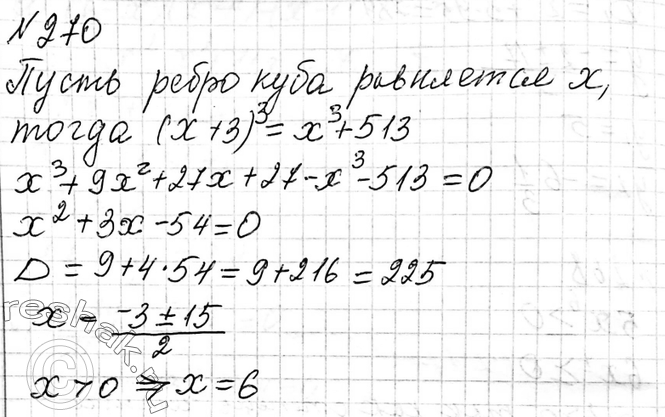 №270
Пусть ребро куба равняется x,
тогда (x+3)³ = x³+513
x³+9x²+27x+27-x³-513=0
x²+3x-54=0
D=9+4·54=9+216=225
x = (-3±15)/2
x>0 ⇒ x=6
reshak.ru